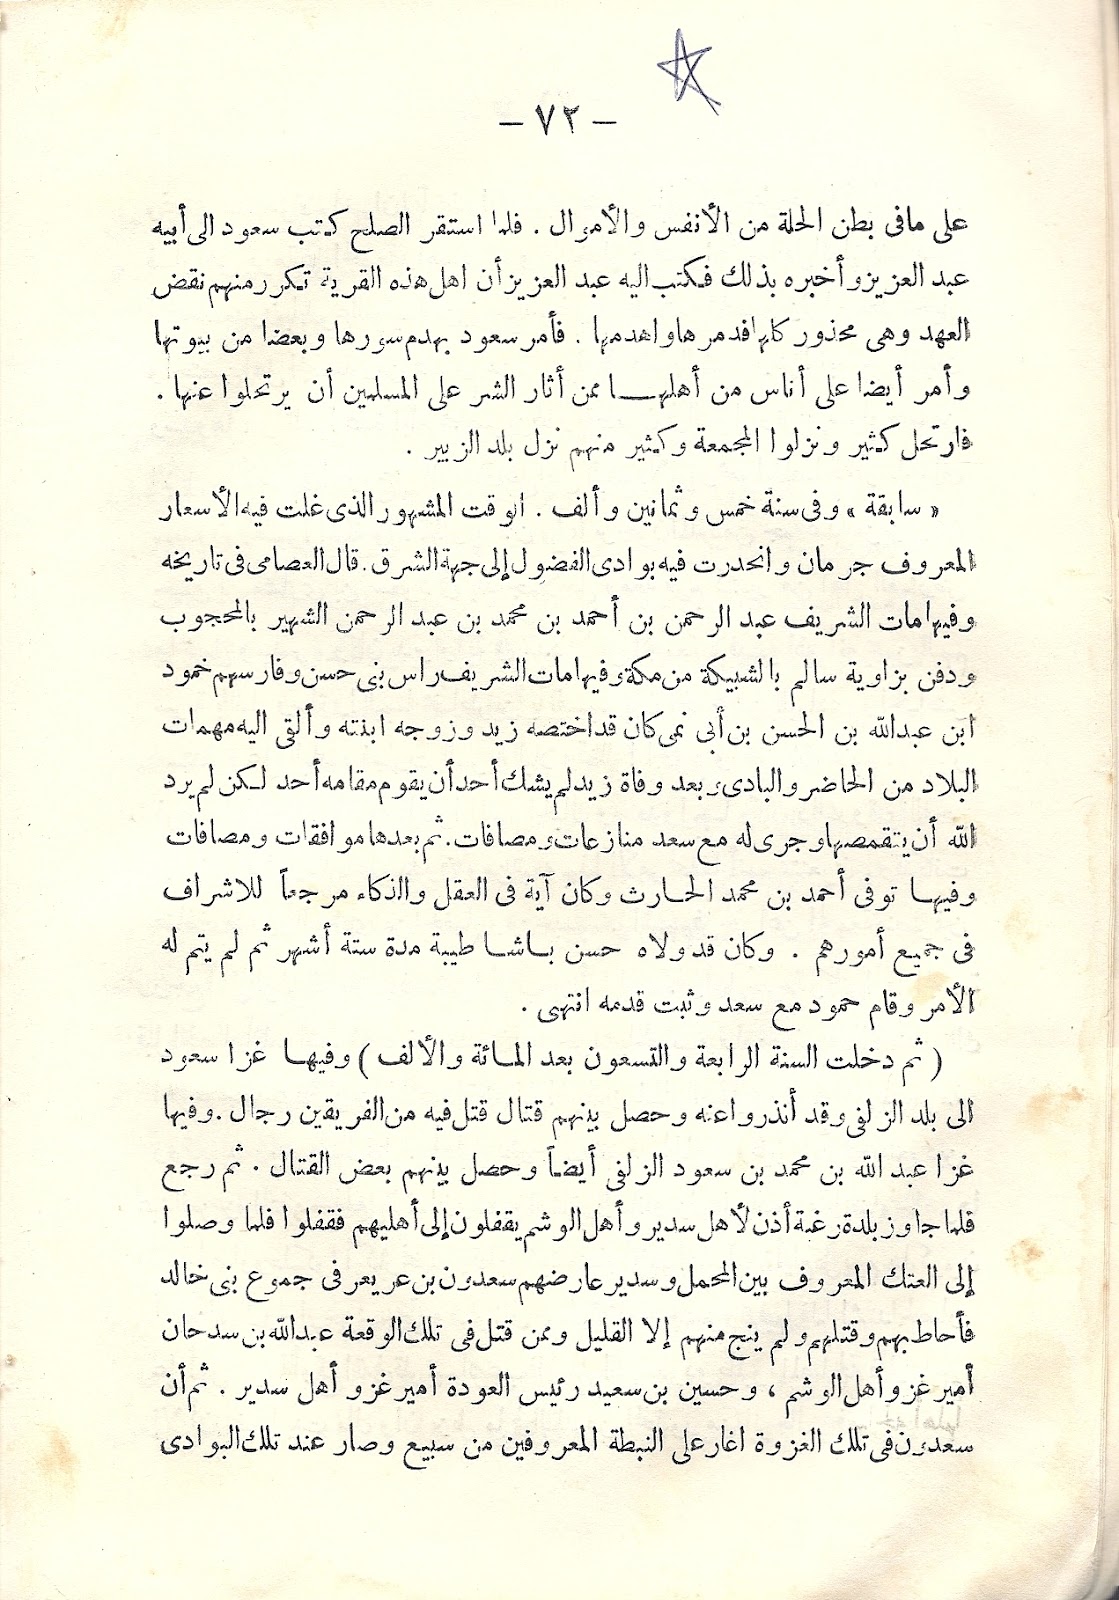 — ٧٢ —
على مافى بطن الحلة من الأنفس والأموال . فلما استقر الصلح كتب سعود الى أبيه
عبد العزيز وأخبره بذلك فكتب اليه عبد العزيز أن اهل هذه القرية تكرر منهم نقض
العهد وهى محذور كلها فدمرها واهدمها . فأمر سعود بهدم سورها وبعضا من بيوتها
وأمر أيضا على أناس من أهلهـــا ممن أثار الشر على المسلمين أن يرتحلوا عنها .
فارتحل كثير ونزلوا المجمعة وكثير منهم نزل بلد الزبير .
« سابقة » وفى سنة خمس وثمانين وألف . الوقت المشهور الذى غلت فيه الأسعار
المعروف جرمان وانحدرت فيه بوادى الفضول إلى جهة الشرق . قال العصامى فى تاريخه
وفيها مات الشريف عبد الرحمن بن أحمد بن محمد بن عبد الرحمن الشهير بالمحجوب
ودفن بزاوية سالم بالشبيكة من مكة وفيها مات الشريف راس بنى حسن وفارسهم حمود
ابن عبدالله بن الحسن بن أبى نمى كان قد اختصه زيد وزوجه ابنته وألقى اليه مهمات
البلاد من الحاضر والبادى وبعد وفاة زيد لم يشك أحد أن يقوم مقامه أحد لكن لم يرد
الله أن يتقمصها وجرى له مع سعد منازعات ومصافات . ثم بعدها موافقات ومصافات
وفيها توفى أحمد بن محمد الحارث وكان آية فى العقل والذكاء مرجعاً للاشراف
فى جميع أمورهم . وكان قد ولاه حسن باشا طيبة مدة ستة أشهر ثم لم يتم له
الأمر وقام حمود مع سعد وثبت قدمه انتهى .
( ثم دخلت السنة الرابعة والتسعون بعد المائة والألف ) وفيها غزا سعود
الى بلد الزلفى وقد أنذروا عنه وحصل بينهم قتال قتل فيه من الفريقين رجال . وفيها
غزا عبد الله بن محمد بن سعود الزلفى أيضاً وحصل بينهم بعض القتال . ثم رجع
فلما جاوز بلدة رغبة أذن لأهل سدير وأهل الوشم يقفلون إلى أهليهم فقفلوا فلما وصلوا
إلى العتك المعروف بين المحمل وسدير عارضهم سعدون بن عريعر فى جموع بنى خالد
فأحاط بهم وقتلهم ولم ينج منهم إلا القليل وممن قتل فى تلك الوقعة عبدالله بن سدحان
أمير غزو أهل الوشم ، وحسين بن سعيد رئيس العودة أمير غزو أهل سدير . ثم أن
سعدون فى تلك الغزوة اغار على النبطة المعروفين من سبيع وصار عند تلك البوادى